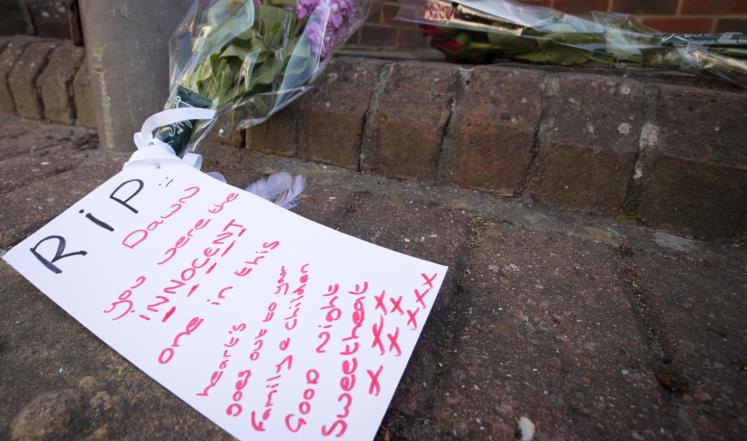 RiP
Dawn
you were the
INNOCENT
one in this
heart's
Goes out to your
Family & Children
Good Night
Sweetheat
xxx
xxx
xxx